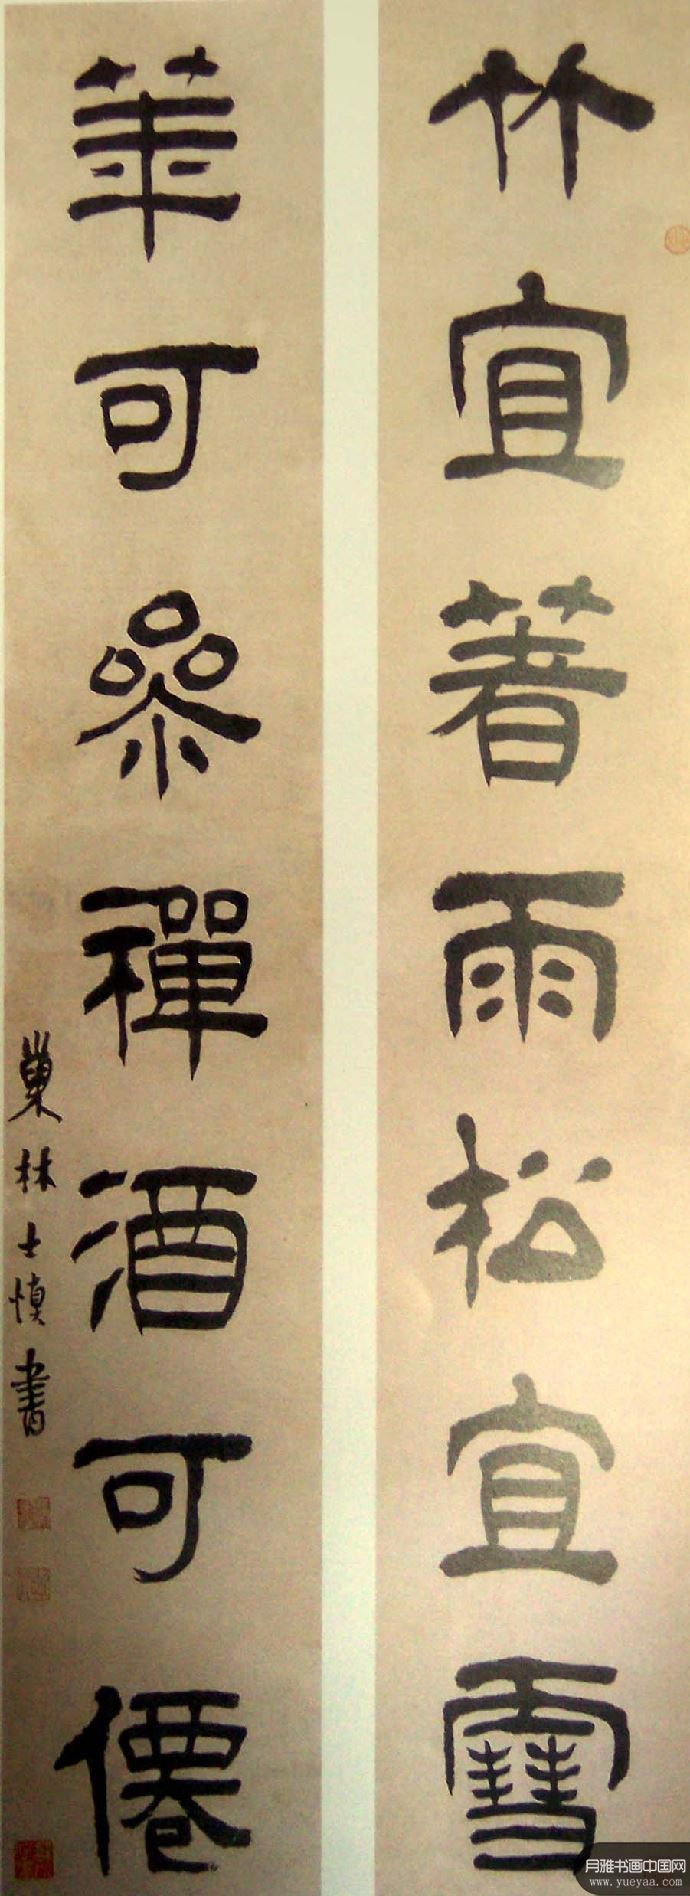 竹宜著雨松宜雪
華可參禪酒可僊
巢林士慎書
月雅书画中国网
www.yueyaa.com